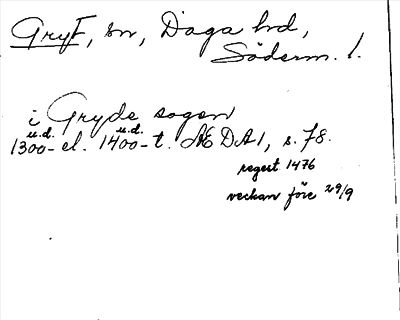 Gryt, sn, Daga hd,
Söderm. l.
i Gryde sogen
u.d. u.d.
1300- el. 1400-t. ÆDA 1, s. 78.
regest 1476
veckan före 29/9